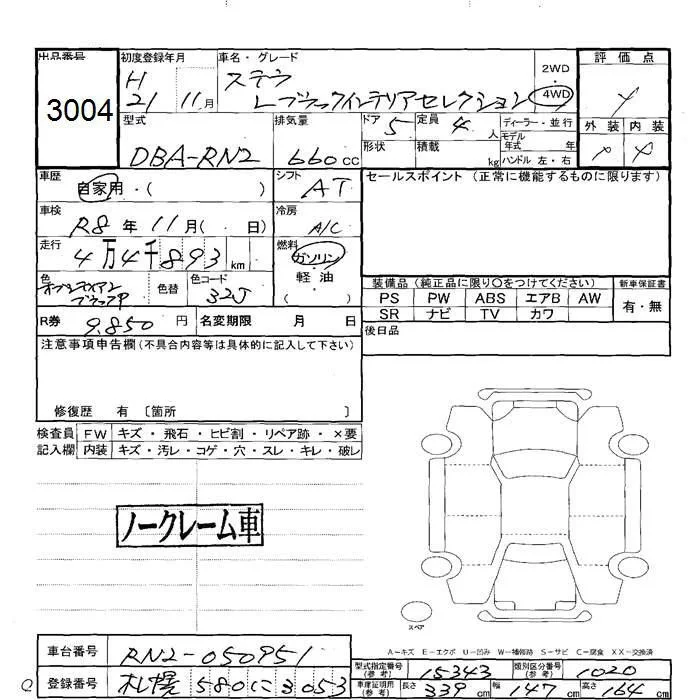 出品番号
3004
初度登録年月
H
21 11月
車名・グレード
ステラ
Lブラックインテリアセレクション
2WD
・
4WD
評価点
外装 内装
型式
DBA-RN2
排気量
660cc
ドア 5
定員 4人
形状
積載 kg
ディーラー・並行
モデル年式 年
ハンドル 左・右
車歴
自家用・( )
シフト
AT
セールスポイント(正常に機能するものに限ります)
車検
R8年11月( ・ 日)
冷房
A/C
走行
4万4千893km
燃料
ガソリン
軽油
( )
色
色替
色コード
32J
装備品(純正品に限り○をつけてください)
新車保証書
PS PW ABS エアB AW
有・無
SR ナビ TV カワ
R券 9.850円
名変期限 月 日
後日品
注意事項申告欄(不具合内容等は具体的に記入して下さい)
修復歴 有 〔箇所 〕
検査員 FW キズ・飛石・ヒビ割・リペア跡・×要
記入欄 内装 キズ・汚レ・コゲ・穴・スレ・キレ・破レ
ノークレーム車
スペア
A−キズ E−エクボ U−凹み W−補修跡 S−サビ C−腐食 XX−交換済
車台番号 RN2-050951
型式指定番号(参考) 15343
類別区分番号(参考) 1020
登録番号 札幌580に3053
車庫証明用(参考) 長さ 339cm 幅 147cm 高さ 164cm